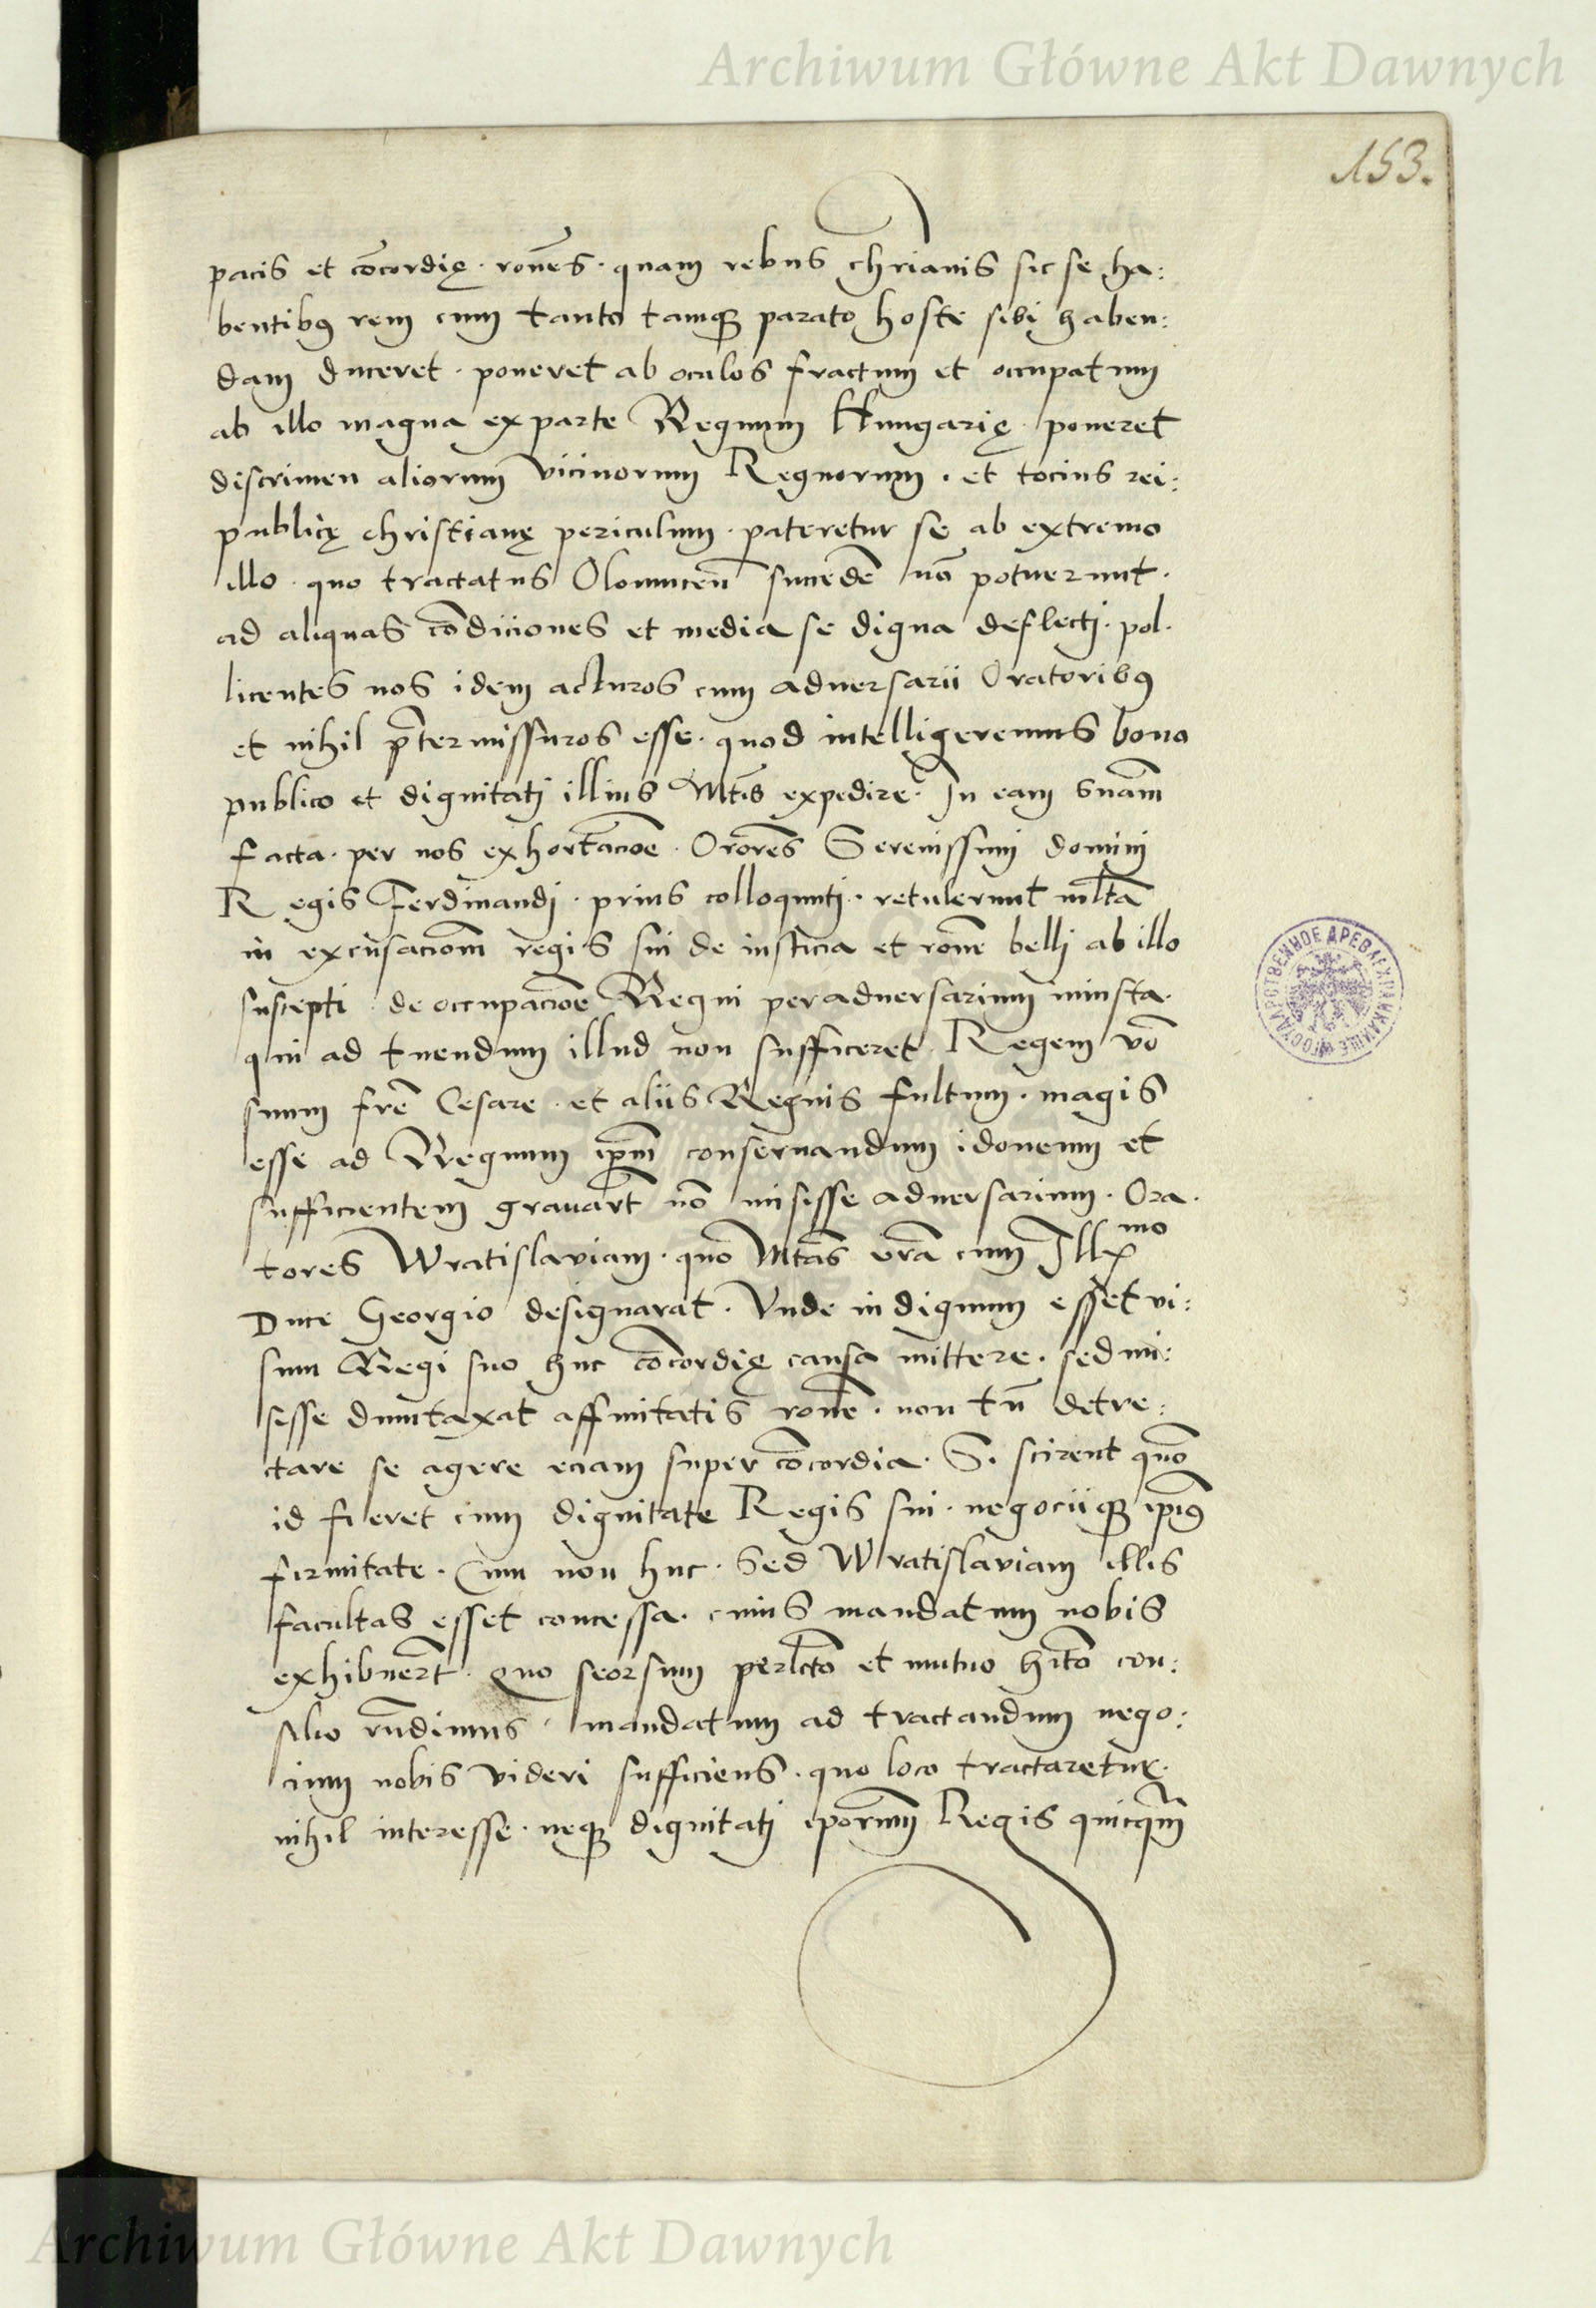 Archiwum Główne Akt Dawnych
153.
pacis et cōcordię · rōnes · quam rebus chrianis sic se ha:
bentibꝰ rem cum tanto tamqꝫ parato hoste sibi haben:
dam duceret · poneret ab oculos fractum et occupatum
ab illo magna ex parte Regnum Hungarię · poneret
discrimen aliorum vicinorum Regnorum · et tocius rei:
publicę christianę periculum · pateretur se ab extremo
illo · quo tractatus Olomucen̄ succedē nō potuerunt ·
ad aliquas cōdiciones et media se digna deflecti · pol·
licentes nos idem acturos cum adversarii Oratoribꝰ
et nihil p̄termissuros esse · quod intelligeremus bono
publico et dignitati illius Mtis expedire · In eam snām
facta · per nos exhortacōe · Orōres Serenissimi domini
Regis Ferdinandi · prius colloquuti · retulerunt mltā
in excusacōm regis sui de iusticia et rōne belli ab illo
suscepti · de occupacōe Regni per adversarium iniusta ·
qui ad tuendum illud non sufficeret · Regem vō
suum frē Cesare · et aliis Regnis fultum · magis
esse ad Regnum ip̄m conservandum idoneum et
sufficientem gravart̄ nō misisse adversarium · Ora·
tores Wratislaviam · quo Mtas vrā cum Ill mo
Duce Georgio designarat · Vnde indignum esset vi:
sum Regi suo huc cōcordię causa mittere · sed mi:
sisse dumtaxat affinitatis rōne · non tn̄ detre:
ctare se agere eciam super cōcordia · S· scirent quō
id fieret cum dignitate Regis sui · negociiqꝫ ipiꝰ
firmitate · Cum non huc · Sed Wratislaviam illis
facultas esset concessa · cuius mandatum nobis
exhibuert̄ · Quo seorsum perlcto et mutuo hito con:
silio rn̄dimus · mandatum ad tractandum nego:
cium nobis videri sufficiens · quo loco tractaretur ·
nihil interesse · neqꝫ dignitati ip̄orum Regis quicq̄m
Archiwum Główne Akt Dawnych